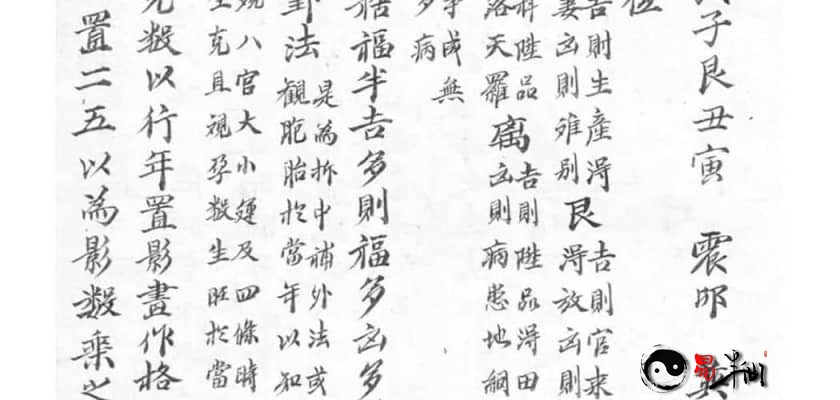 子艮丑寅 震卯
位
吉則生產淂
妻凶則雖别
艮
吉則官来
淂放凶則
科陞品
落天羅
离
吉則陞品淂田
凶則病患地網
成無
多病
福半吉多則福多凶多
卦法
是為折中補外法或
観胞胎於當年以知
八宮大小運及四條時
克且視孕数生旺於當
数以行年置影畫作格
置二五以為影数乘之
易半仙